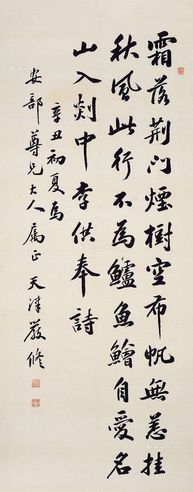 霜落荊門煙樹空布帆無恙挂
秋風此行不為鱸魚鱠自愛名
山入剡中李供奉詩
辛丑初夏為
安部尊兄大人属正 天津嚴修